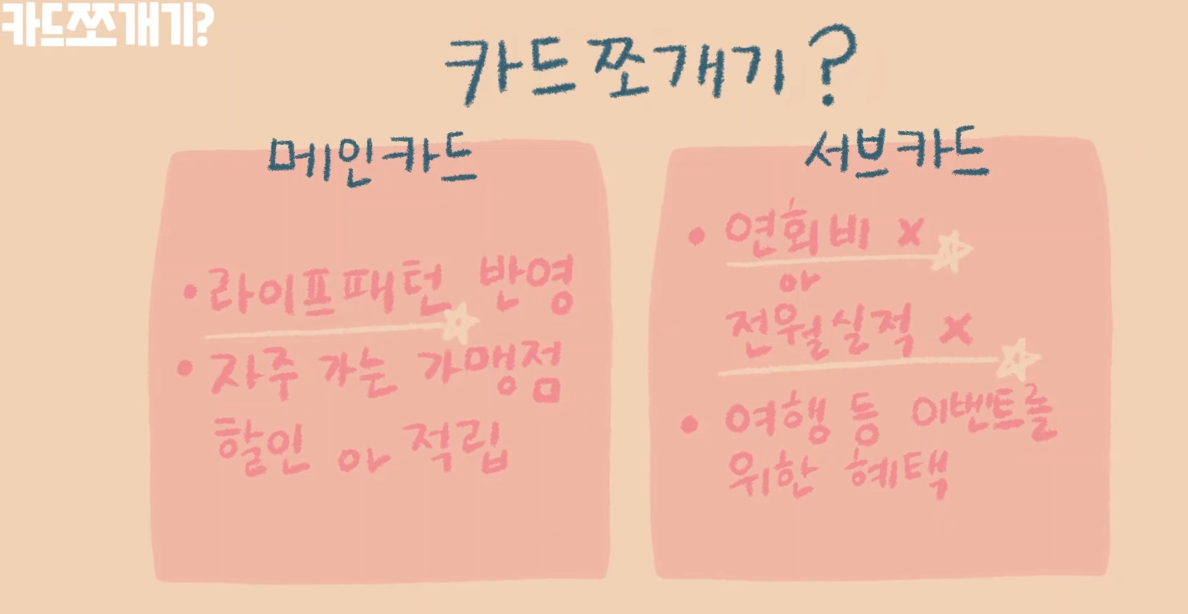 카드쪼개기?
카드쪼개기?
메인카드
• 라이프패턴 반영
• 자주 가는 가맹점
할인 or 적립
서브카드
• 연회비 x
or
전월실적 x
• 여행 등 이벤트를
위한 혜택